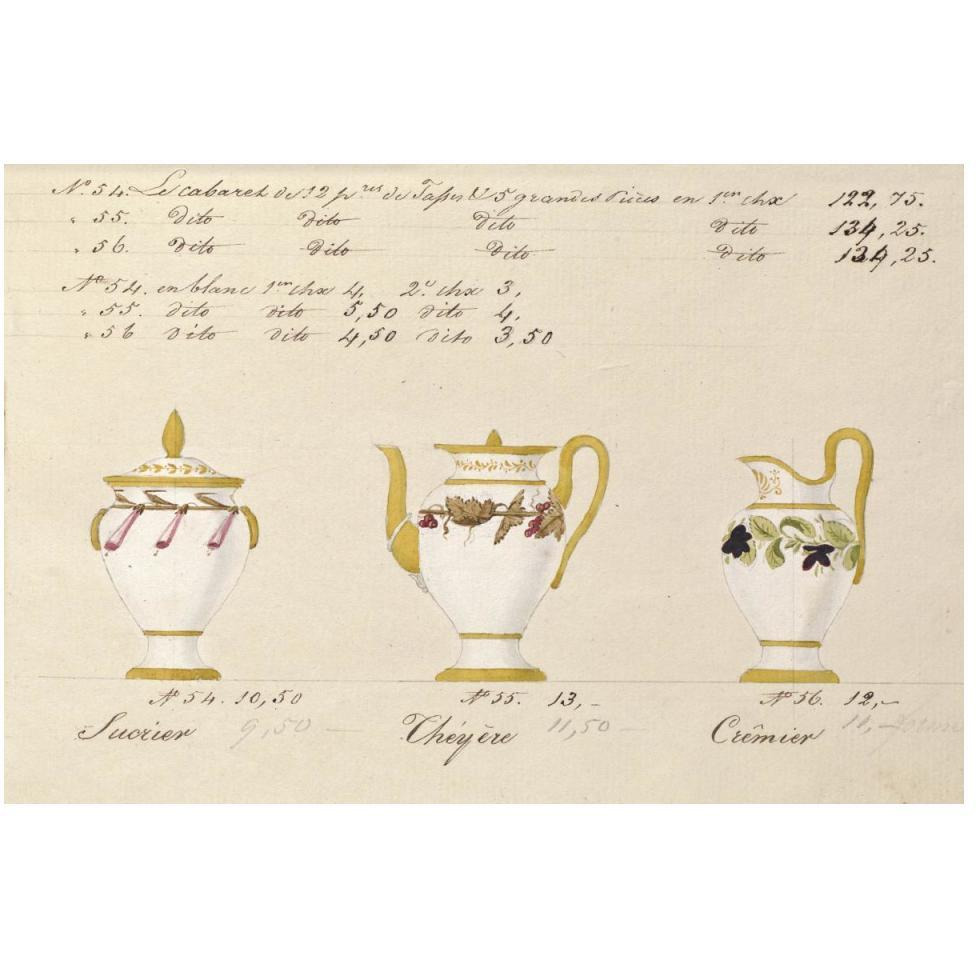 N.º 54. Le cabaret de 12 p.res de Tasses & 5 grandes Pièces en 1.er chx 122,75.
" 55. dito dito dito dito 134,25.
" 56. dito dito dito dito 134,25.
N.º 54. en blanc 1.er chx 4, 2.d chx 3,
" 55. dito dito 5,50 dito 4,
" 56 dito dito 4,50 dito 3,50
N.º 54. 10,50 N.º 55. 13,- N.º 56. 12,-
Sucrier 9,50 - Théyère 11,50 - Crêmier 11,-